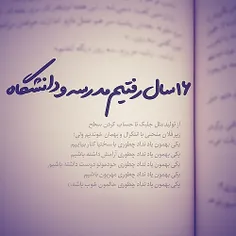 ۱۶ سال رفتیم مدرسه و دانشگاه
از تولید مثل جلبک تا حساب کردن سطح
زیر فلان منحنی با انتگرال و بهمان خوندیم ولی:
یکی بهمون یاد نداد چطوری با سختیا کنار بیاییم
یکی بهمون یاد نداد چطوری آرامش داشته باشیم
یکی بهمون یاد نداد چطوری خودمونو دوست داشته باشیم
یکی بهمون یاد نداد چطوری مهربون باشیم
یکی بهمون یاد نداد چطوری حالمون خوب باشه